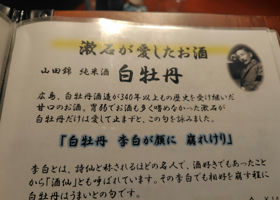 漱石が愛したお酒
山田錦 純米酒 白牡丹
広島、白牡丹酒造が340年以上もの歴史を受け継いだ
甘口のお酒。胃弱でお酒も多く嗜めなかった漱石が
白牡丹だけは愛して止まずと、この句を詠みました。
『白牡丹 李白が顔に 崩れけり』
李白とは、詩仙と称されるほどの名人で、酒好きでもあったこと
から「酒仙」とも呼ばれています。その李白でも相好を崩す程に
白牡丹はうまいとの句です。